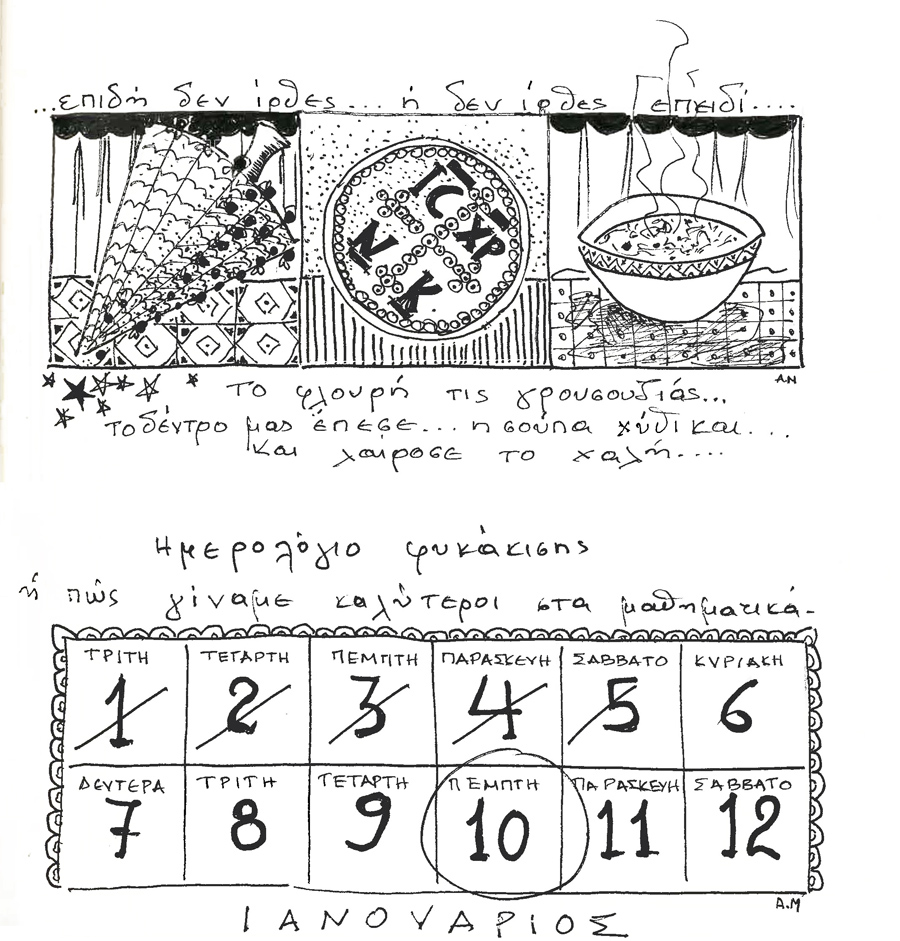 ...επιδή δεν ίρθες... ή δεν ίρθες επειδί....
ΙC ΧΡ
Ν Κ
Α.Μ
Το φλουρή τις γρουσουζιάς...
το δέντρο μας έπεσε... η σούπα χύθικαι...
και λαίροσε το χαλή....
Ημερολόγιο φυκάκισης
ή πώς γίναμε καλύτεροι στα μαθηματικά-
ΤΡΙΤΗ ΤΕΤΑΡΤΗ ΠΕΜΠΤΗ ΠΑΡΑΣΚΕΥΗ ΣΑΒΒΑΤΟ ΚΥΡΙΑΚΗ
1 2 3 4 5 6
ΔΕΥΤΕΡΑ ΤΡΙΤΗ ΤΕΤΑΡΤΗ ΠΕΜΠΤΗ ΠΑΡΑΣΚΕΥΗ ΣΑΒΒΑΤΟ
7 8 9 10 11 12
Α.Μ
ΙΑΝΟΥΑΡΙΟΣ